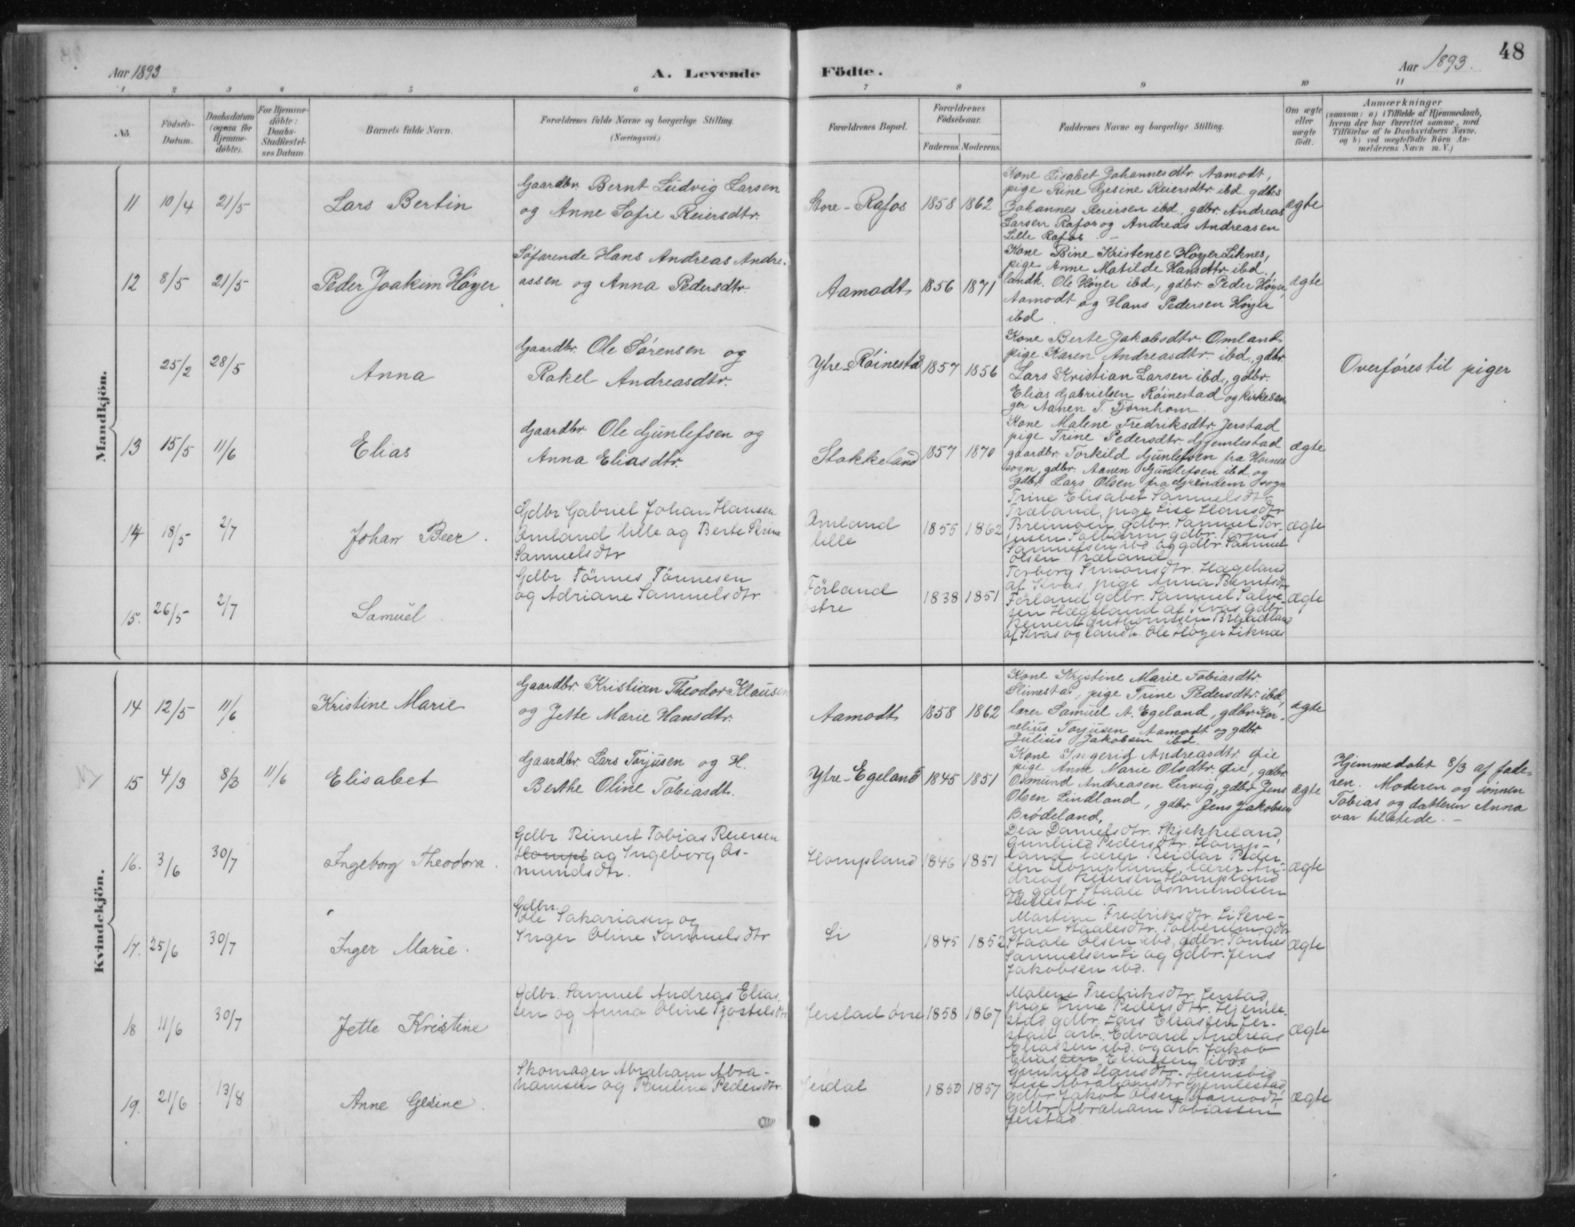 Aar 1893
A. Levende Födte.
Aar 1893.
48
1 2 3 4 5 6 7 8 9 10 11
No.
Födsels-
Datum.
Daabsdatum
(ogsaa for
Hjemme-
döbte).
For Hjemme-
döbte:
Daabs-
Stadfæstel-
ses Datum
Barnets fulde Navn.
Forældrenes fulde Navne og borgerlige Stilling.
(Næringsvei.)
Forældrenes Bopæl.
Forældrenes
Födselsaar.
Faderens. Moderens.
Faddernes Navne og borgerlige Stilling.
Om ægte
eller
uægte
født.
Anmærkninger
(saasom: a) i Tilfælde af Hjemmedaab,
hvem der har forrettet samme, med
Tilføielse af to Daabsvidners Navne,
og b) ved uægtefödte Börn An-
melderens Navn m. V.)
Mandkjön.
11 10/4 21/5
Lars Bertin
Gaardbr. Bernt Ludvig Larsen
og Anne Sofie Reiersdtr.
Store-Rafos 1858 1862
Kone Elisabet Johannesdtr Aamodt,
pige Rine Gesine Reiersdtr ibd gdbr
Johannes Reiersen ibd., gdbr Andreas
Larsen Rafos og Andreas Andreasen
Lille Rafos. –
ægte
12 8/5 21/5
Peder Joakim Høyer
Søfarende Hans Andreas Andre-
assen og Anna Pedersdtr.
Aamodt 1856 1871
Kone Bine Kristense Høyer Liknes,
pige Anne Matilde Hansdtr ibd.
landh. Ole Høyer ibd., gdbr. Peder Høyer,
Aamodt og Hans Pedersen Høyer
ibd.
ægte
25/2 28/5
Anna
Gaardbr. Ole Sørensen og
Rakel Andreasdtr.
Ytre-Röinestad 1857 1856
Kone Berte Jakobsdtr. Omland
pige Karen Andreasdtr. ibd., gdbr.
Lars Kristian Larsen ibd., gdbr.
Elias Gabrielsen Röinestad og kirkesan-
ger Aanen T. Tjørnhom.
Overføres til piger
13 15/5 11/6
Elias
Gaardbr. Ole Gunlefsen og
Anna Eliasdtr.
Stakkeland 1857 1870
Kone Malene Fredriksdtr Jerstad
pige Trine Pedersdtr. Gjemlestad
gaardbr. Torkild Gunlefsen fra
sogn, gdbr. Aanen Gunlefsen ibd og
gdbr. Lars Olsen fra Grindem sogn
ægte
14 18/5 2/7
Johan Beer.
Gdbr Gabriel Johan Hansen
Omland lille og Berte
Samuelsdtr
Omland
lille
1855 1862
Trine Elisabet Samuelsdtr
Træland, pige Lise Hansdtr
gdbr. Samuel
gdbr.
Samuelsen ibd og gdbr. Samuel
Olsen Træland
ægte
15. 26/5 2/7
Samuel
Gdbr. Tönnes Tönnesen
og Adriane Samuelsdtr
Förland
østre
1838 1851
Torborg Simonsdtr. Hægeland
af Kvas, pige Anna Berntsdtr
Förland gdbr. Samuel Salve-
sen Hægeland af Kvas gdbr
af Kvas og landh. Ole Høyer Liknes
ægte
Kvindekjön.
14 12/5 11/6
Kristine Marie
Gaardbr. Kristian Theodor Klausen
og Jette Marie Hansdtr.
Aamodt 1858 1862
Kone Kristine Marie Tobiasdtr
pige Trine Pedersdtr. ibd,
lærer Samuel A. Egeland, gdbr Kor-
nelius Torjusen Aamodt og gdbr
Julius Jakobsen ibd.
ægte
15 4/3 8/3 11/6
Elisabet
Gaardbr. Lars Torjusen og H.
Berthe Oline Tobiasdtr.
Ytre-Egeland 1845 1851
Kone Ingerid Andreasdtr Øie
pige Anne Marie Olsdtr. Øie, gdbr.
Osmund Andreassen Lervig, gdbr. Jens
Olsen Lindland, gdbr. Jens Jakobsen
Brødeland.
ægte
Hjemmedøbt 8/3 af fade-
ren. Moderen og sønnen
Tobias og datteren Anna
var tilstede. –
16. 3/6 30/7
Ingeborg Theodora.
Gdbr Reinert Tobias Reiersen
Hompl og Ingeborg Os-
mundsdtr.
Hompland 1846 1851
Dea Danielsdtr.
Gunhild Pedersdtr. Homp-
land lærer Reidar Peder-
sen Hompland, lærer An-
dreas Reiersen Hompland
og gdbr. Staale Osmundsen
ægte
17. 25/6 30/7
Inger Marie.
Gdbr.
Ole Sakariasen og
Inger Oline Samuelsdtr
Li 1845 1852
Martine Fredriksdtr. Li
Staalesdtr.
Staale Olsen ibd, gdbr. Tönnes
Samuelsen Li og gdbr. Jens
Jakobsen ibd.
ægte
18 11/6 30/7
Jette Kristine
Gdbr. Samuel Andreas Elias-
sen og Anna Oline
Jerstad øvre 1858 1867
Malene Fredriksdtr. Jerstad,
pige Trine Pedersdtr. Gjemle-
stad gdbr. Lars Eliassen Jer-
stad arb. Edvard Andreas
Eliassen ibd. og arb. Jakob
Eliassen ibd
ægte
19. 21/6 13/8
Anne Gesine.
Skomager Abraham Abra-
hamsen og Pauline Pedersdtr
1850 1857
Gunhild Hansdtr.
Lise Abrahamsdtr Gjemlestad
gdbr. Jakob Olsen Aamodt
gdbr. Abraham Tobiassen
Jerstad
ægte